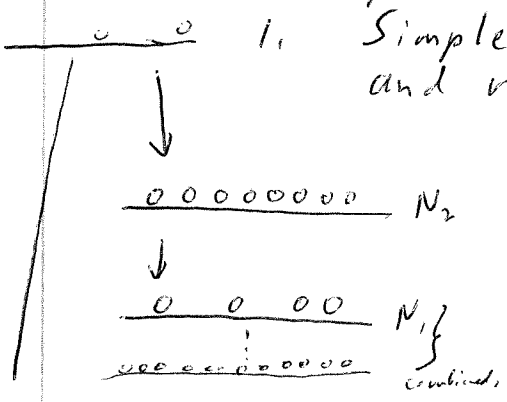 1. Simple
and
N₂
N₁
combined,